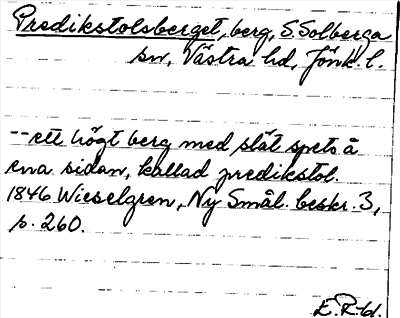 Predikstolsberget, berg, S. Solberga
sn, Västra hd, Jönk. l.
--ett högt berg med slät spets å
ena sidan, kallad predikstol.
1846 Wieselgren, Ny Smål. beskr. 3,
p. 260.